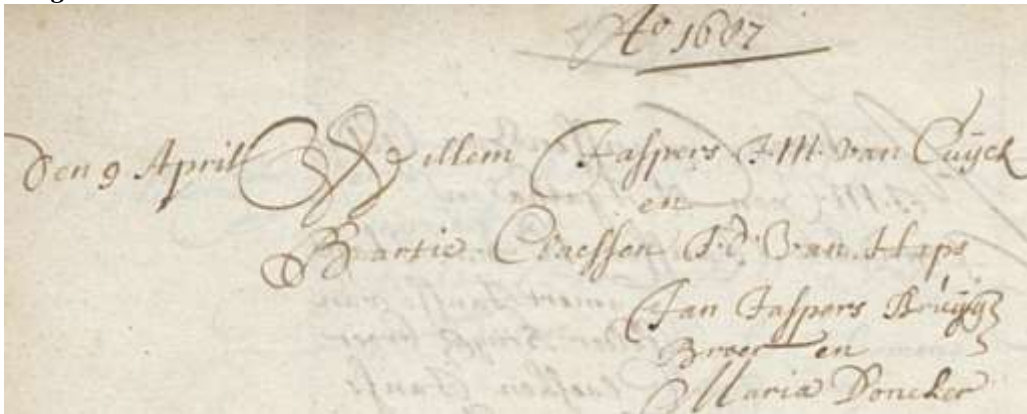 Ao 1687
Den 9 April Willem Jaspers J.M. van Cuÿck
en
Baertie Claessen J.d. Van Haps
Jan Jaspers Bruÿg
Broer en
Maria Doncker